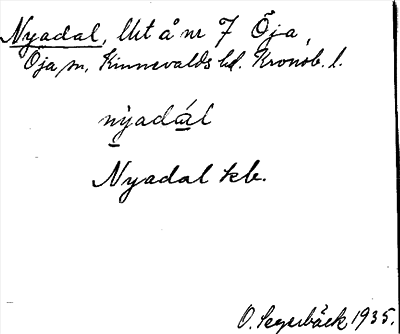 Nyadal, lht å nr 7 Öja,
Öja sn, Kinnevalds hd. Kronob. l.
nỳadál
Nyadal kb.
O. Segerbäck 1935.